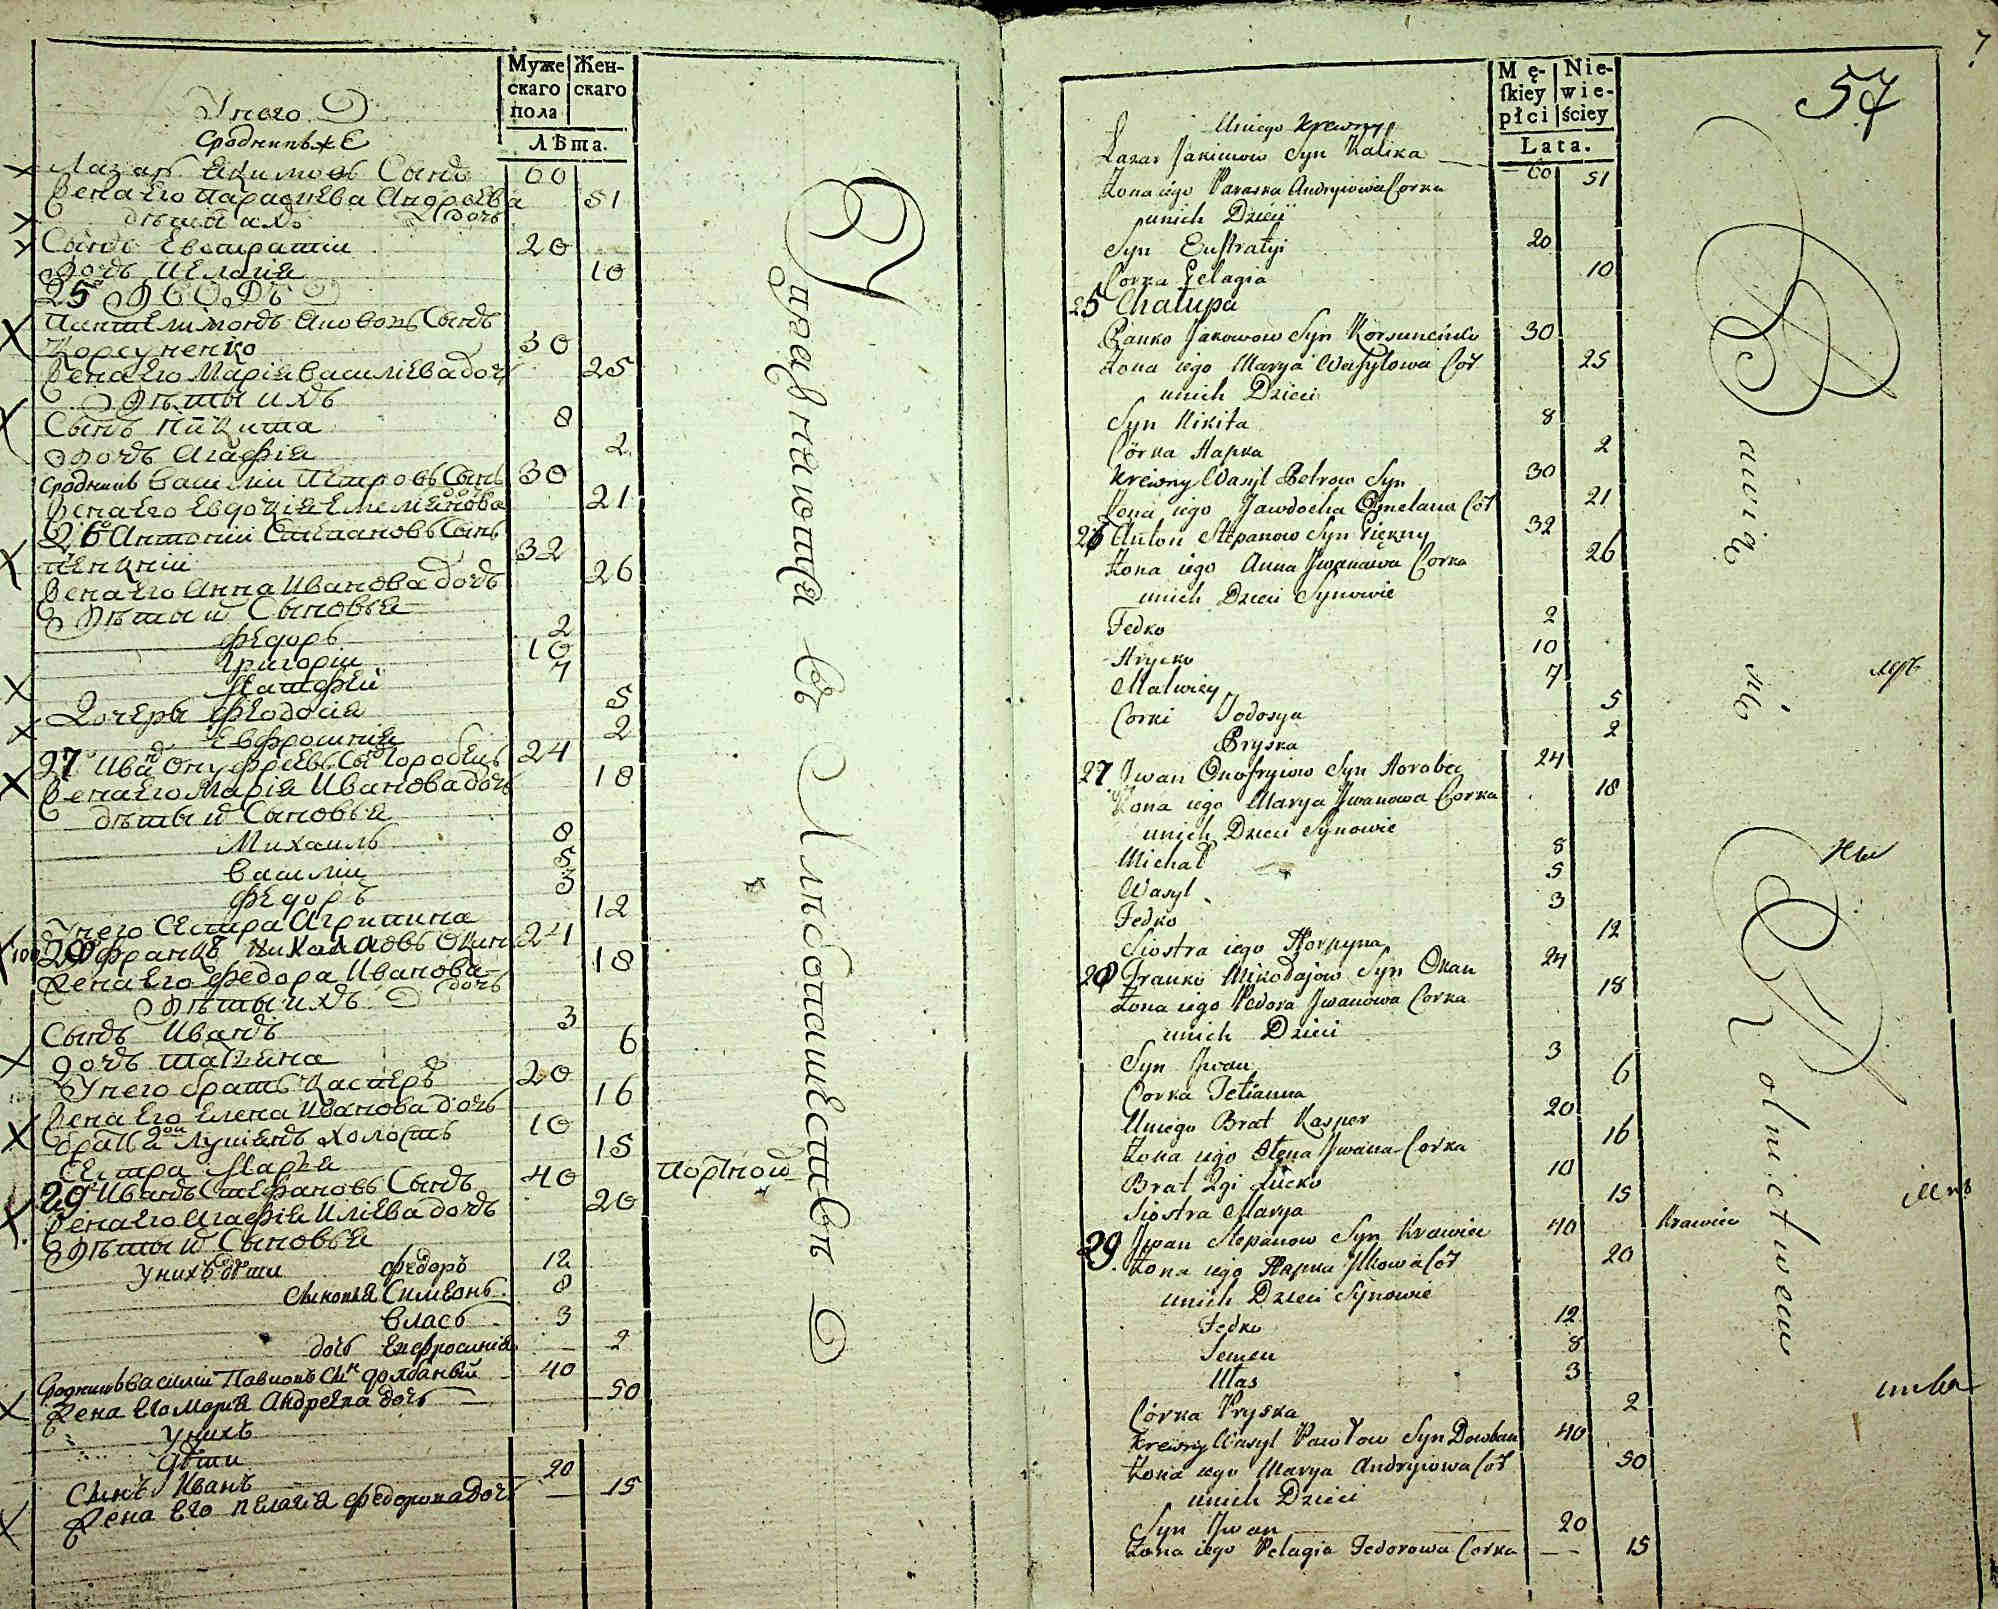 Муже Жен-
скаго скаго
пола
Лѣта.
У него
Сродникъ же
Лазар Якимовъ Сынъ 60
Жена его Параскева Андреева дочь 51
дѣти ихъ
Сынъ Евстратии 20
Дочь Пелагия 10
25 Дворъ
Пантелимонъ Яковов Сынъ
Корсуненко 30
Жена его Мария василиева доч 25
Дѣты ихъ
Сынъ Никита 8
Дочь Агафия 2
Сродникъ василии Петровъ Сынъ 30
Жена его Евдокия Емелянова дочь 21
26 Антонии Степановъ Сынъ
пенкнии 32
Жена его Анна Иванова дочь 26
Дѣты их Сыновья
Федоръ 2
Григории 10
Матфеи 7
Дочеры Феодосия 5
Евфросиния 2
27 Иван Онуфриевъ Сы Горобецъ 24
Жена его Мария Иванова дочь 18
дѣты их Сыновья
Михаилъ 8
василии 5
Федоръ 3
У него Сестра Агрипина 12
28 Францъ Николаовъ Окан 24
Жена Его Федора Иванова дочь 18
Дѣты ихъ
Сынъ Иванъ 3
дочь татияна 6
У него братъ Касперъ 20
Жена Его Елена Иванова дочъ 16
братъ 2ои Лукянъ холостъ 10
Сестра Марья 15
29 Иванъ Стефановъ Сынъ 40 портной
Жена его Агафия Илиева дочъ 20
Дѣты их Сыновья
У нихъ дѣти Федоръ 12
Сыновья Симеонъ 8
власъ 3
дочь Ефросиния 2
Сродникъ василии Павловъ Сын долбаный 40
Жена Его Мария Андреева дочь 50
У нихъ
дѣти
Сынъ Иванъ 20
Жена Его пелагия Федорова дочь 15
Упражнаютца въ Хлѣбопашествѣ
Mę- Nie-
ſkiey wie-
płci ściey
Lata.
57
7
U niego Krewny
Lazar Jakimow Syn Kalika 60
Żona iego Paraska Andryiowa Corka 51
u nich Dzieci
Syn Eustratyi 20
Corka Pelagia 10
25 Chałupa
Panko Jakowow Syn Korsunenko 30
Żona iego Marya Wasylowa Cór 25
u nich Dzieci
Syn Nikita 8
Córka Hapka 2
Krewny Wasyl Petrow Syn 30
Żona iego Jawdocha Omelana Cór 21
26 Anton Stepanow Syn Piękny 32
Żona iego Anna Jwanawa Corka 26
u nich Dzieci Synowie
Fedko 2
Hrycko 10
Matwiey 7
Corki Fodosya 5
Pryska 2
27 Jwan Onofryiow Syn Horobec 24
Żona iego Marya Jwanowa Corka 18
u nich Dzieci Synowie
Michał 8
Wasyl 5
Fedko 3
Siostra iego Horpyna 12
28 Franko Mikołajow Syn Okan 24
Żona iego Fedora Jwanowa Corka 18
u nich Dzieci
Syn Jwan 3
Corka Tetianna 6
U niego Brat Kasper 20
Żona iego Ołena Jwana Corka 16
Brat 2gi Łucko 10
Siostra Marya 15
29 Jwan Stepanow Syn Krawiec 40 Krawiec
Żona iego Hapka Jlkowa Cór 20
u nich Dzieci Synowie
Fedko 12
Semen 8
Włas 3
Córka Pryska 2
Krewny Wasyl Pawłow Syn Dowban 40
Żona iego Marya Andryiowa Cór 50
u nich Dzieci
Syn Jwan 20
Żona iego Pelagia Fedorowa Corka 15
Bawią się Rolnictwem